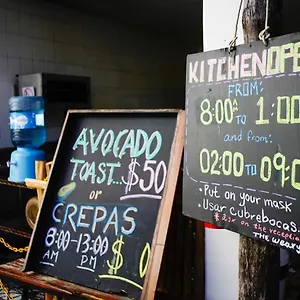 AVOCADO
TOAST... $50
or
CREPAS
8:00-13:00 $0
AM PM
KITCHEN OPE
FROM:
8:00 A to 1:00
and FROM:
02:00 to 09:0
- PUT ON YOUR MASK
- USAR CUBREBOCAS
the reception
THE WEARY